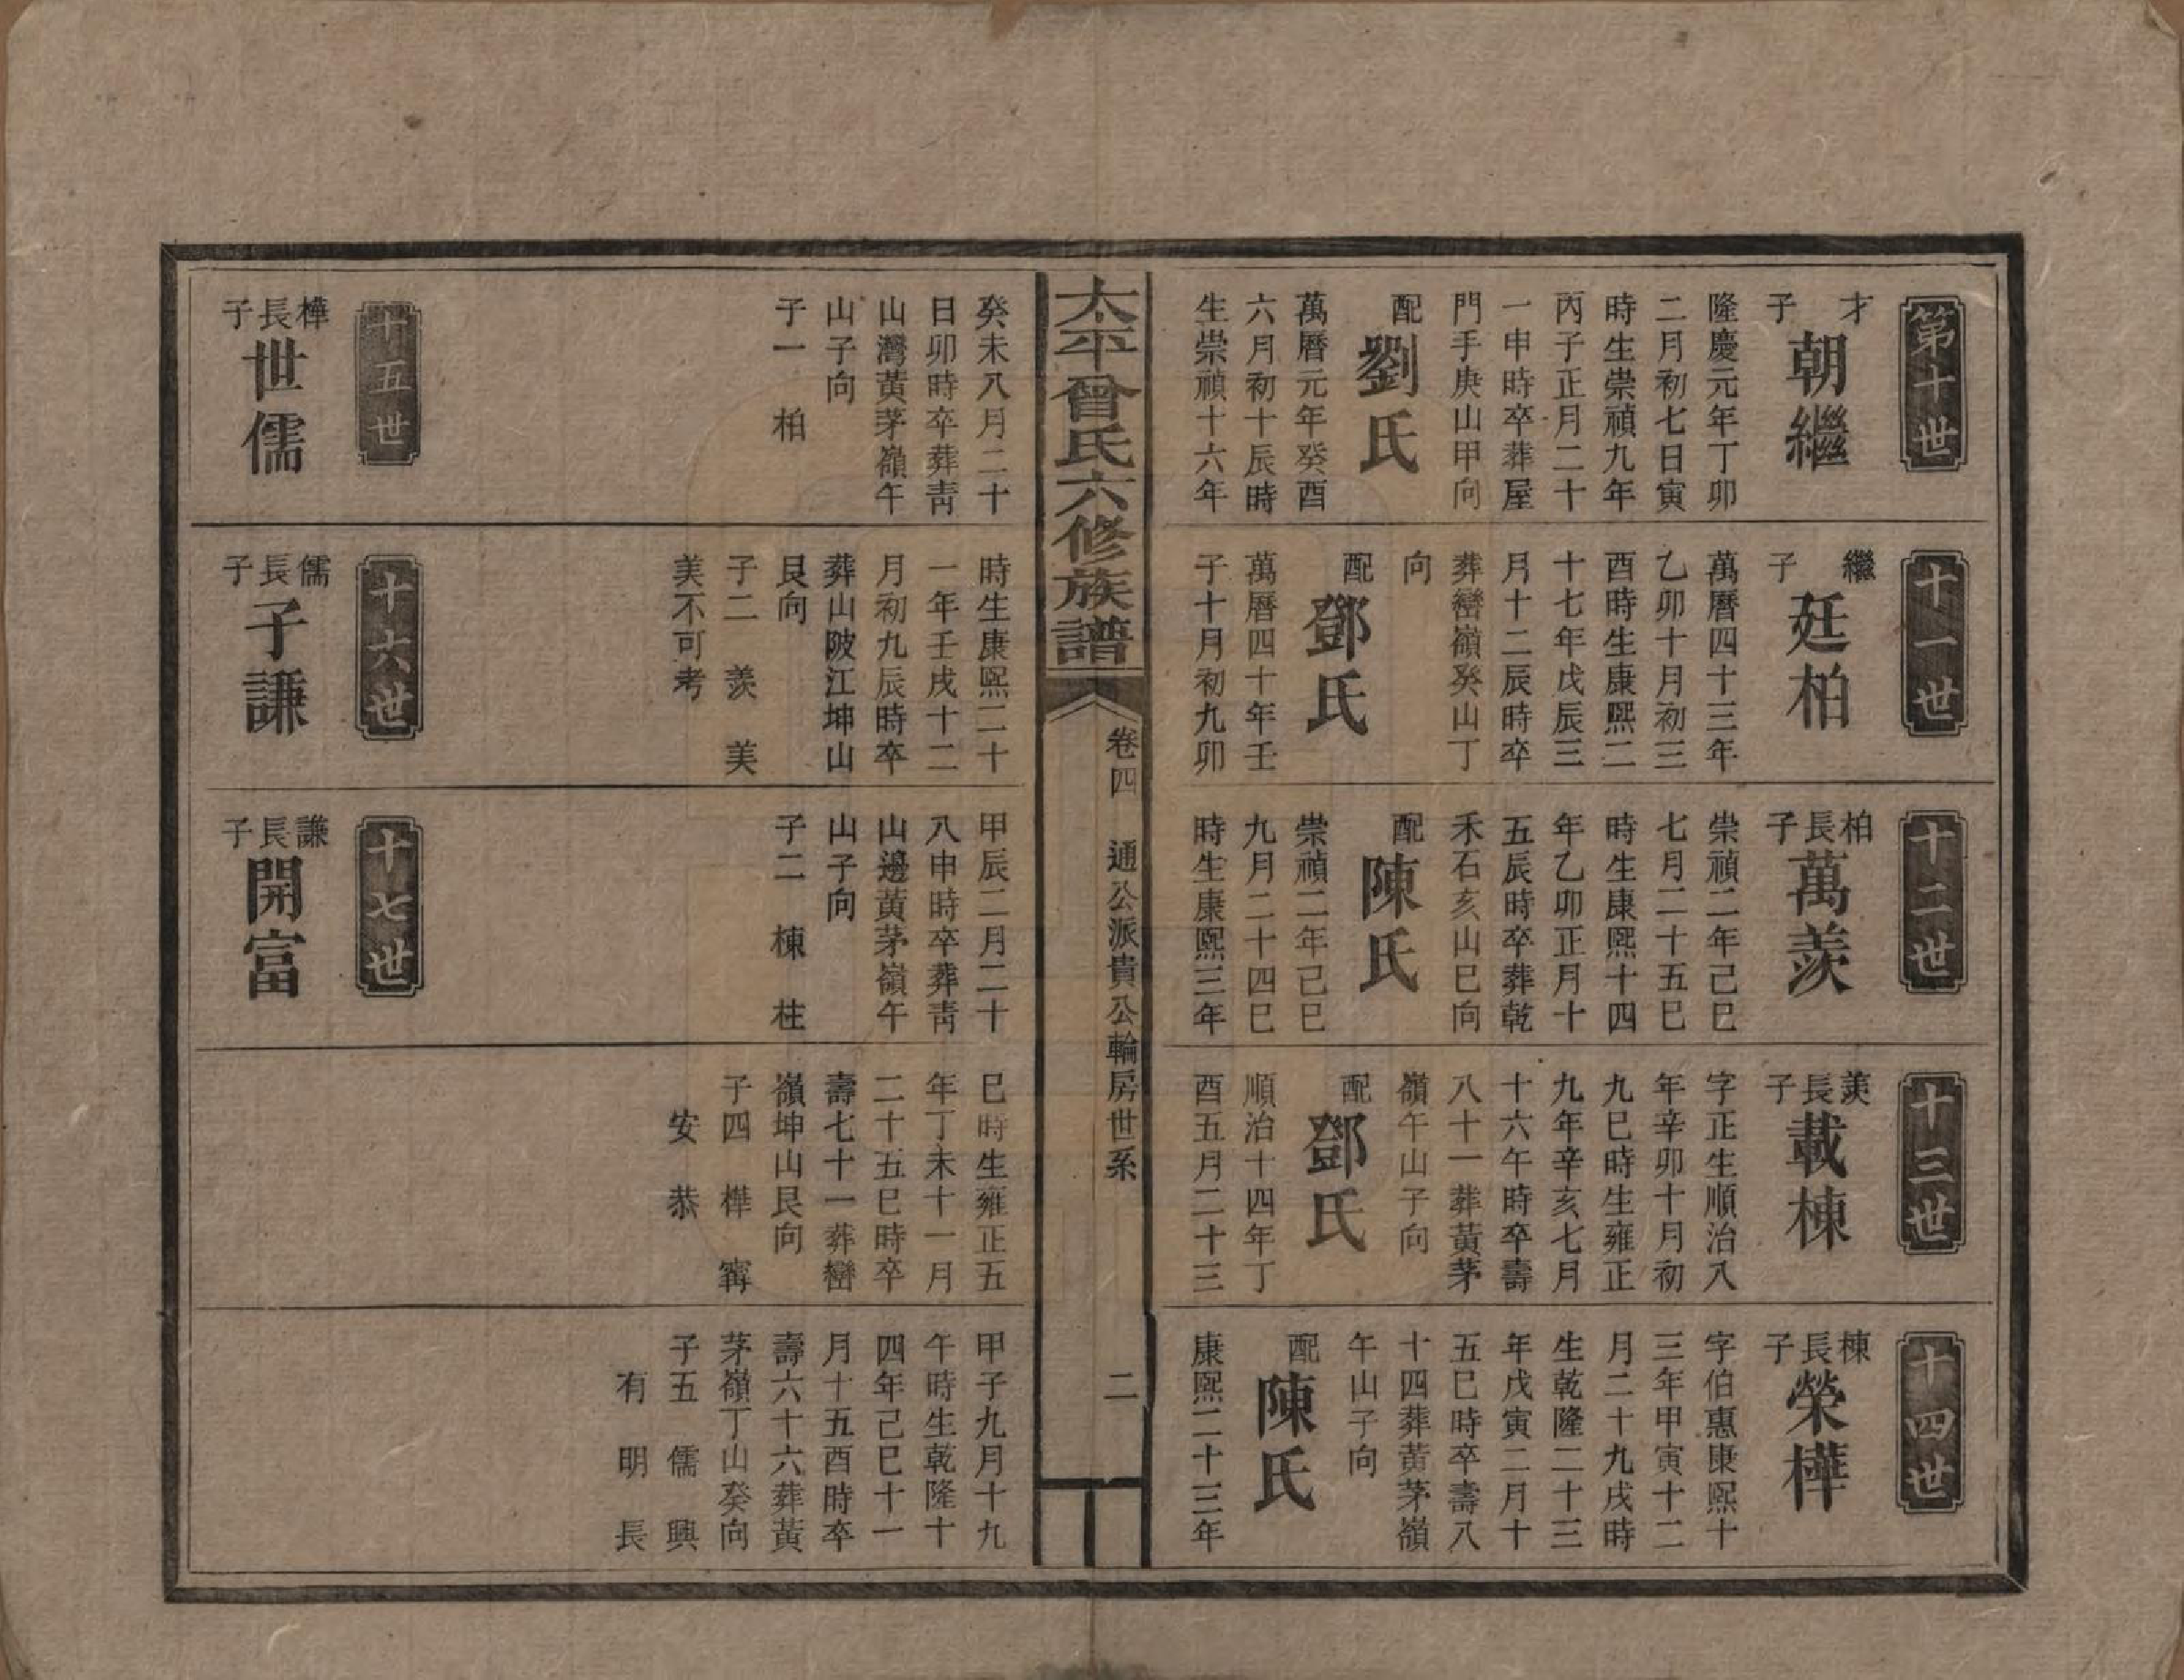 第十世
才子
朝繼
隆慶元年丁卯
二月初七日寅
時生崇禎九年
丙子正月二十
一申時卒葬屋
門手庚山甲向
配
劉氏
萬曆元年癸酉
六月初十辰時
生崇禎十六年
癸未八月二十
日卯時卒葬靑
山灣黃茅嶺午
山子向
子一 柏
十一世
繼子
廷柏
萬曆四十三年
乙卯十月初三
酉時生康熙二
十七年戊辰三
月十二辰時卒
葬巒嶺癸山丁
向
配
鄧氏
萬曆四十年壬
子十月初九卯
時生康熙二十
一年壬戌十二
月初九辰時卒
葬山陂江坤山
艮向
子二 羨 美
美不可考
十二世
柏長子
萬羨
崇禎二年己巳
七月二十五巳
時生康熙十四
年乙卯正月十
五辰時卒葬乾
禾石亥山巳向
配
陳氏
崇禎二年己巳
九月二十四巳
時生康熙三年
甲辰二月二十
八申時卒葬靑
山邊黃茅嶺午
山子向
子二 棟 柱
十三世
羨長子
載棟
字正生順治八
年辛卯十月初
九巳時生雍正
九年辛亥七月
十六午時卒壽
八十一葬黃茅
嶺午山子向
配
鄧氏
順治十四年丁
酉五月二十三
巳時生雍正五
年丁未十一月
二十五巳時卒
壽七十一葬巒
嶺坤山艮向
子四 樺 寗
安 恭
十四世
棟長子
榮樺
字伯惠康熙十
三年甲寅十二
月二十九戌時
生乾隆二十三
年戊寅二月十
五巳時卒壽八
十四葬黃茅嶺
午山子向
配
陳氏
康熙二十三年
甲子九月十九
午時生乾隆十
四年己巳十一
月十五酉時卒
壽六十六葬黃
茅嶺丁山癸向
子五 儒 興
有 明 長
太平曾氏六修族譜
卷四 通公派貴公輪房世系
二
十五世
樺長子
世儒
十六世
儒長子
子謙
十七世
謙長子
開富